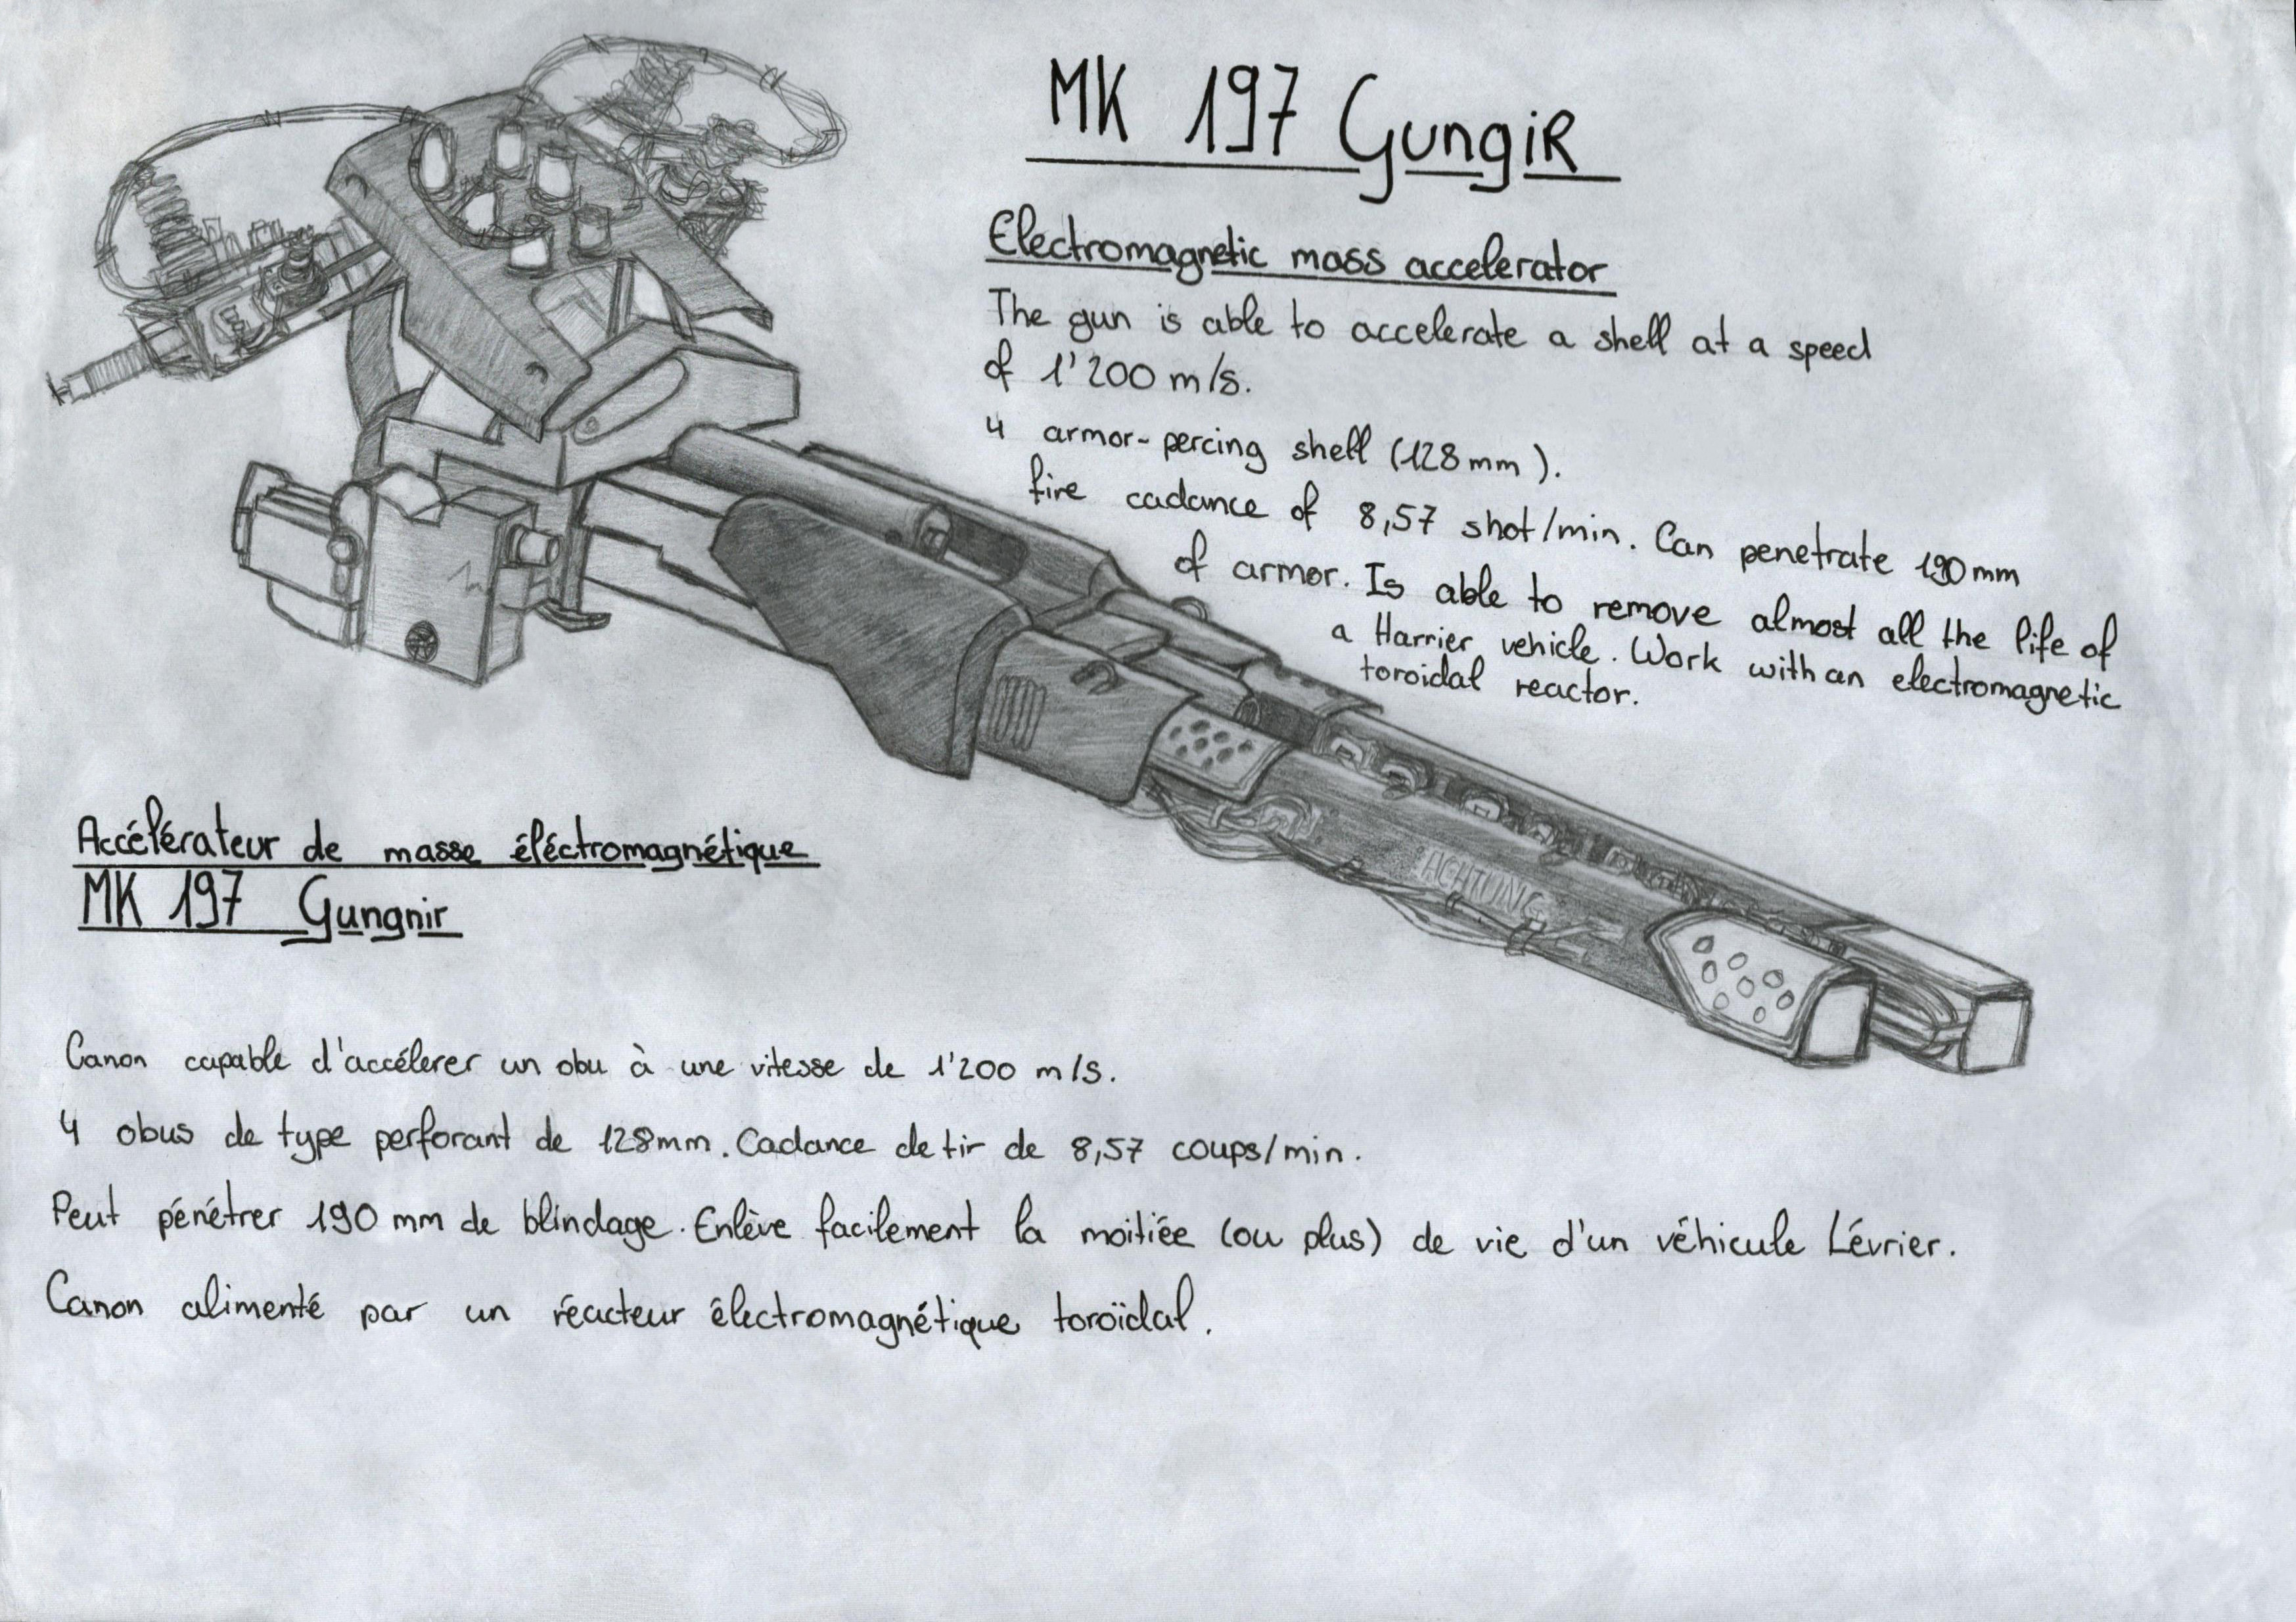 MK 197 GungiR
Electromagnetic mass accelerator
The gun is able to accelerate a shell at a speed
of 1'200 m/s.
4 armor-percing shell (128mm).
fire cadance of 8,57 shot/min. Can penetrate 190mm
of armor. Is able to remove almost all the life of
a Harrier vehicle. Work with an electromagnetic
toroidal reactor.
ACHTUNG
Accélérateur de masse éléctromagnétique
MK 197 Gungnir
Canon capable d'accélerer un obu à une vitesse de 1'200 m/s.
4 obus de type perforant de 128mm. Cadance de tir de 8,57 coups/min.
Peut pénétrer 190 mm de blindage. Enlève facilement la moitiée (ou plus) de vie d'un véhicule Lévrier.
Canon alimenté par un réacteur électromagnétique toroïdal.